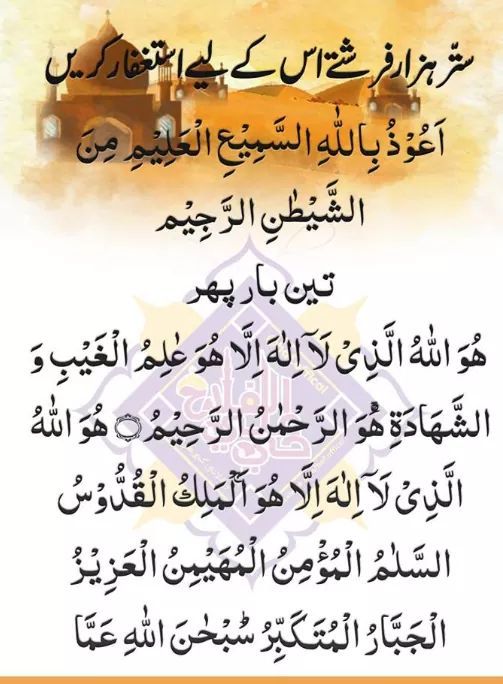 ستّر ہزار فرشتے اس کے لیے استغفار کریں
اَعُوْذُ بِاللّٰهِ السَّمِيْعِ الْعَلِيْمِ مِنَ
الشَّيْطٰنِ الرَّجِيْمِ
تین بار پھر
هُوَ اللّٰهُ الَّذِىْ لَآ اِلٰهَ اِلَّا هُوَ عٰلِمُ الْغَيْبِ وَ
الشَّهَادَةِ هُوَ الرَّحْمٰنُ الرَّحِيْمُ۝ هُوَ اللّٰهُ
الَّذِىْ لَا اِلٰهَ اِلَّا هُوَ اَلْمَلِكُ الْقُدُّوْسُ
السَّلٰمُ الْمُؤْمِنُ الْمُهَيْمِنُ الْعَزِيْزُ
الْجَبَّارُ الْمُتَكَبِّرُ سُبْحٰنَ اللّٰهِ عَمَّا